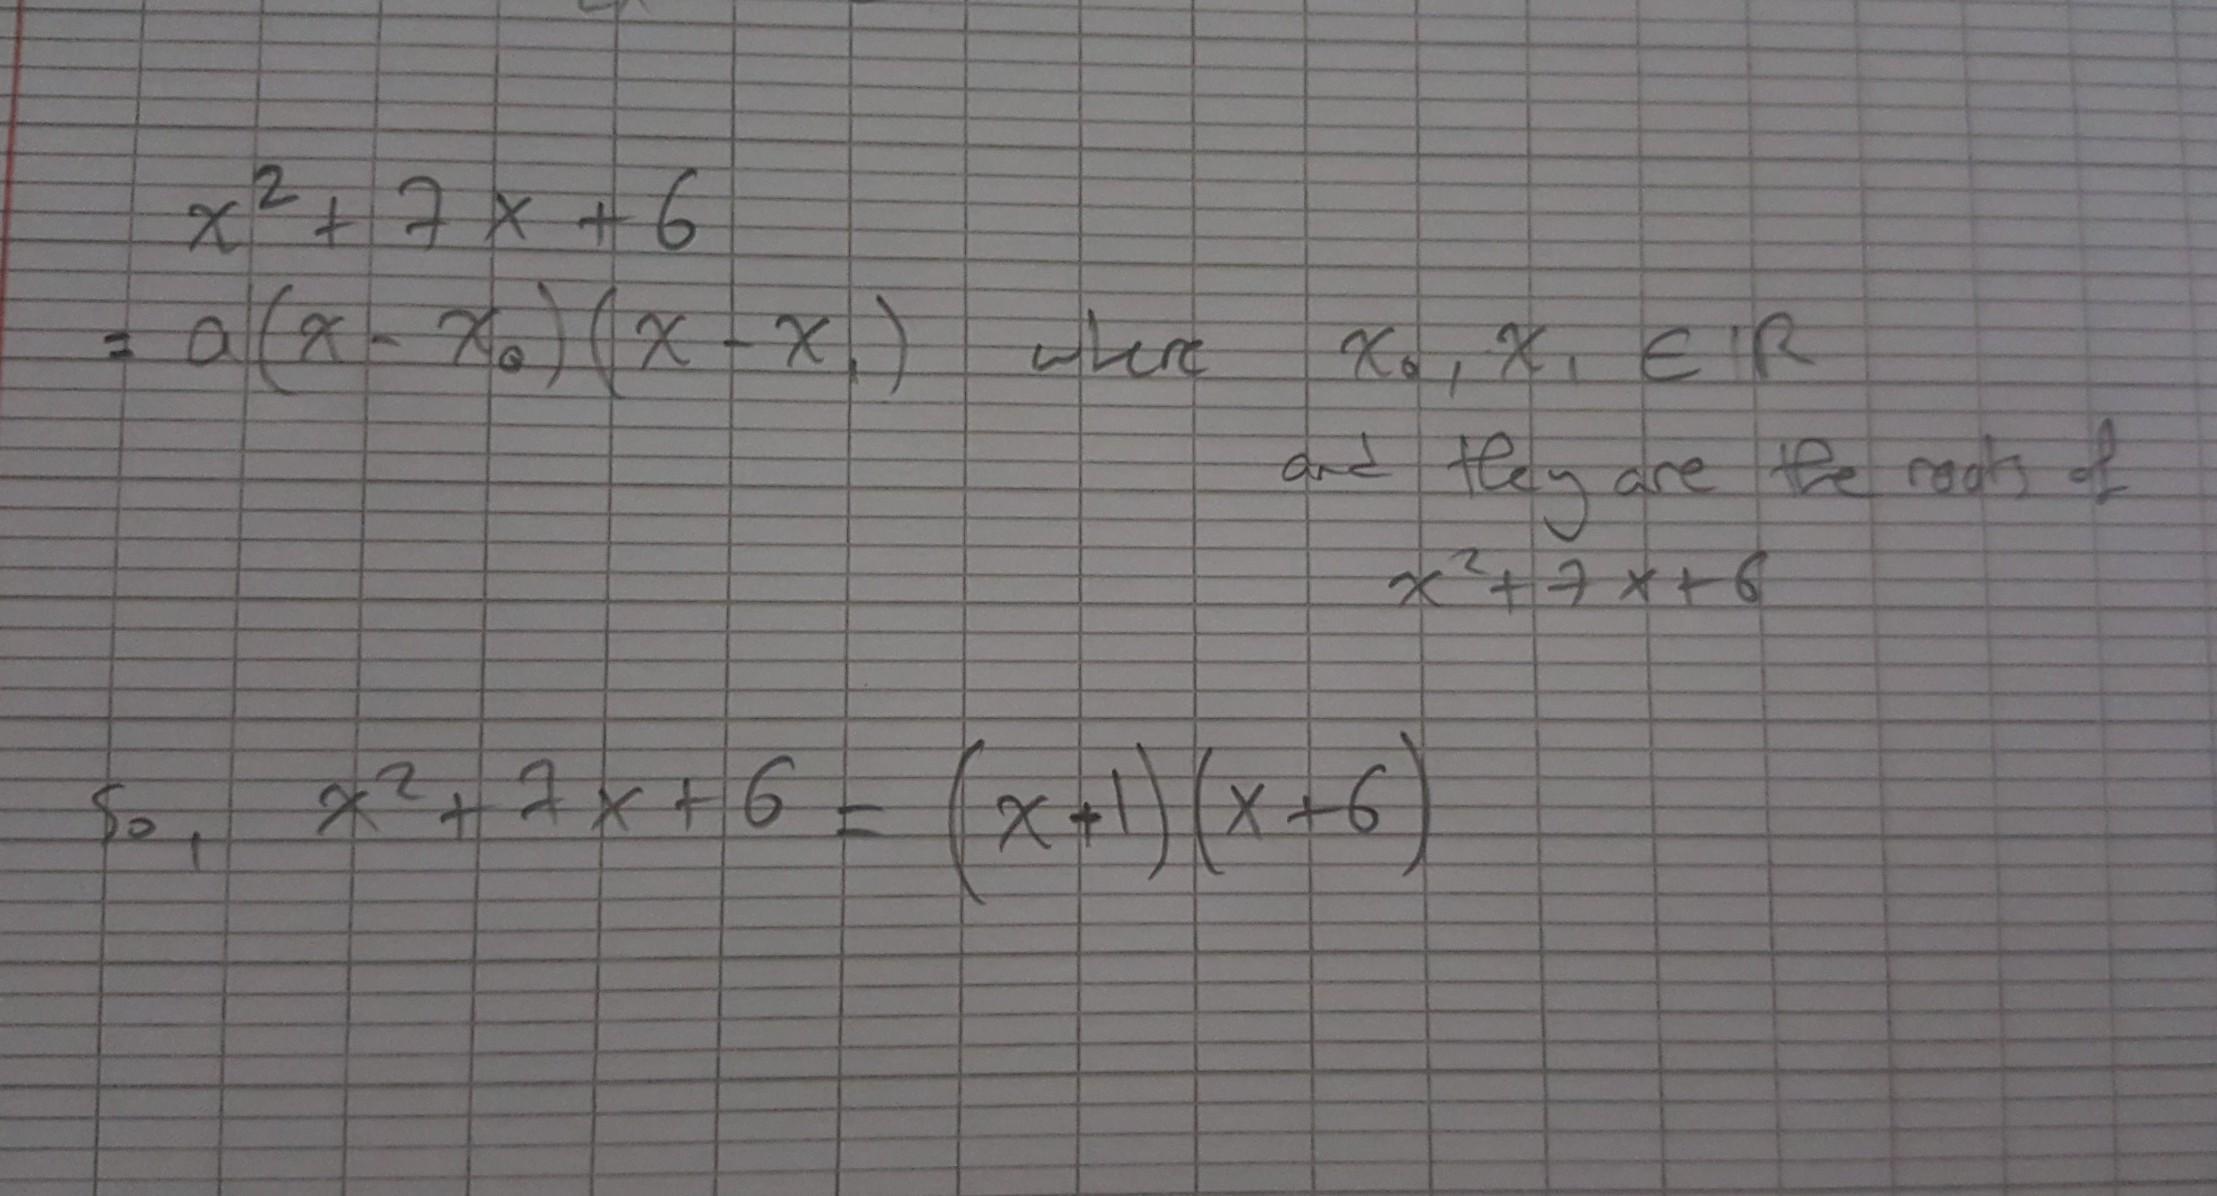 x² + 7x + 6
= a(x - x₀)(x - x₁) where x₀, x₁ ∈ ℝ
and they are the roots of
x² + 7x + 6
So, x² + 7x + 6 = (x+1)(x+6)